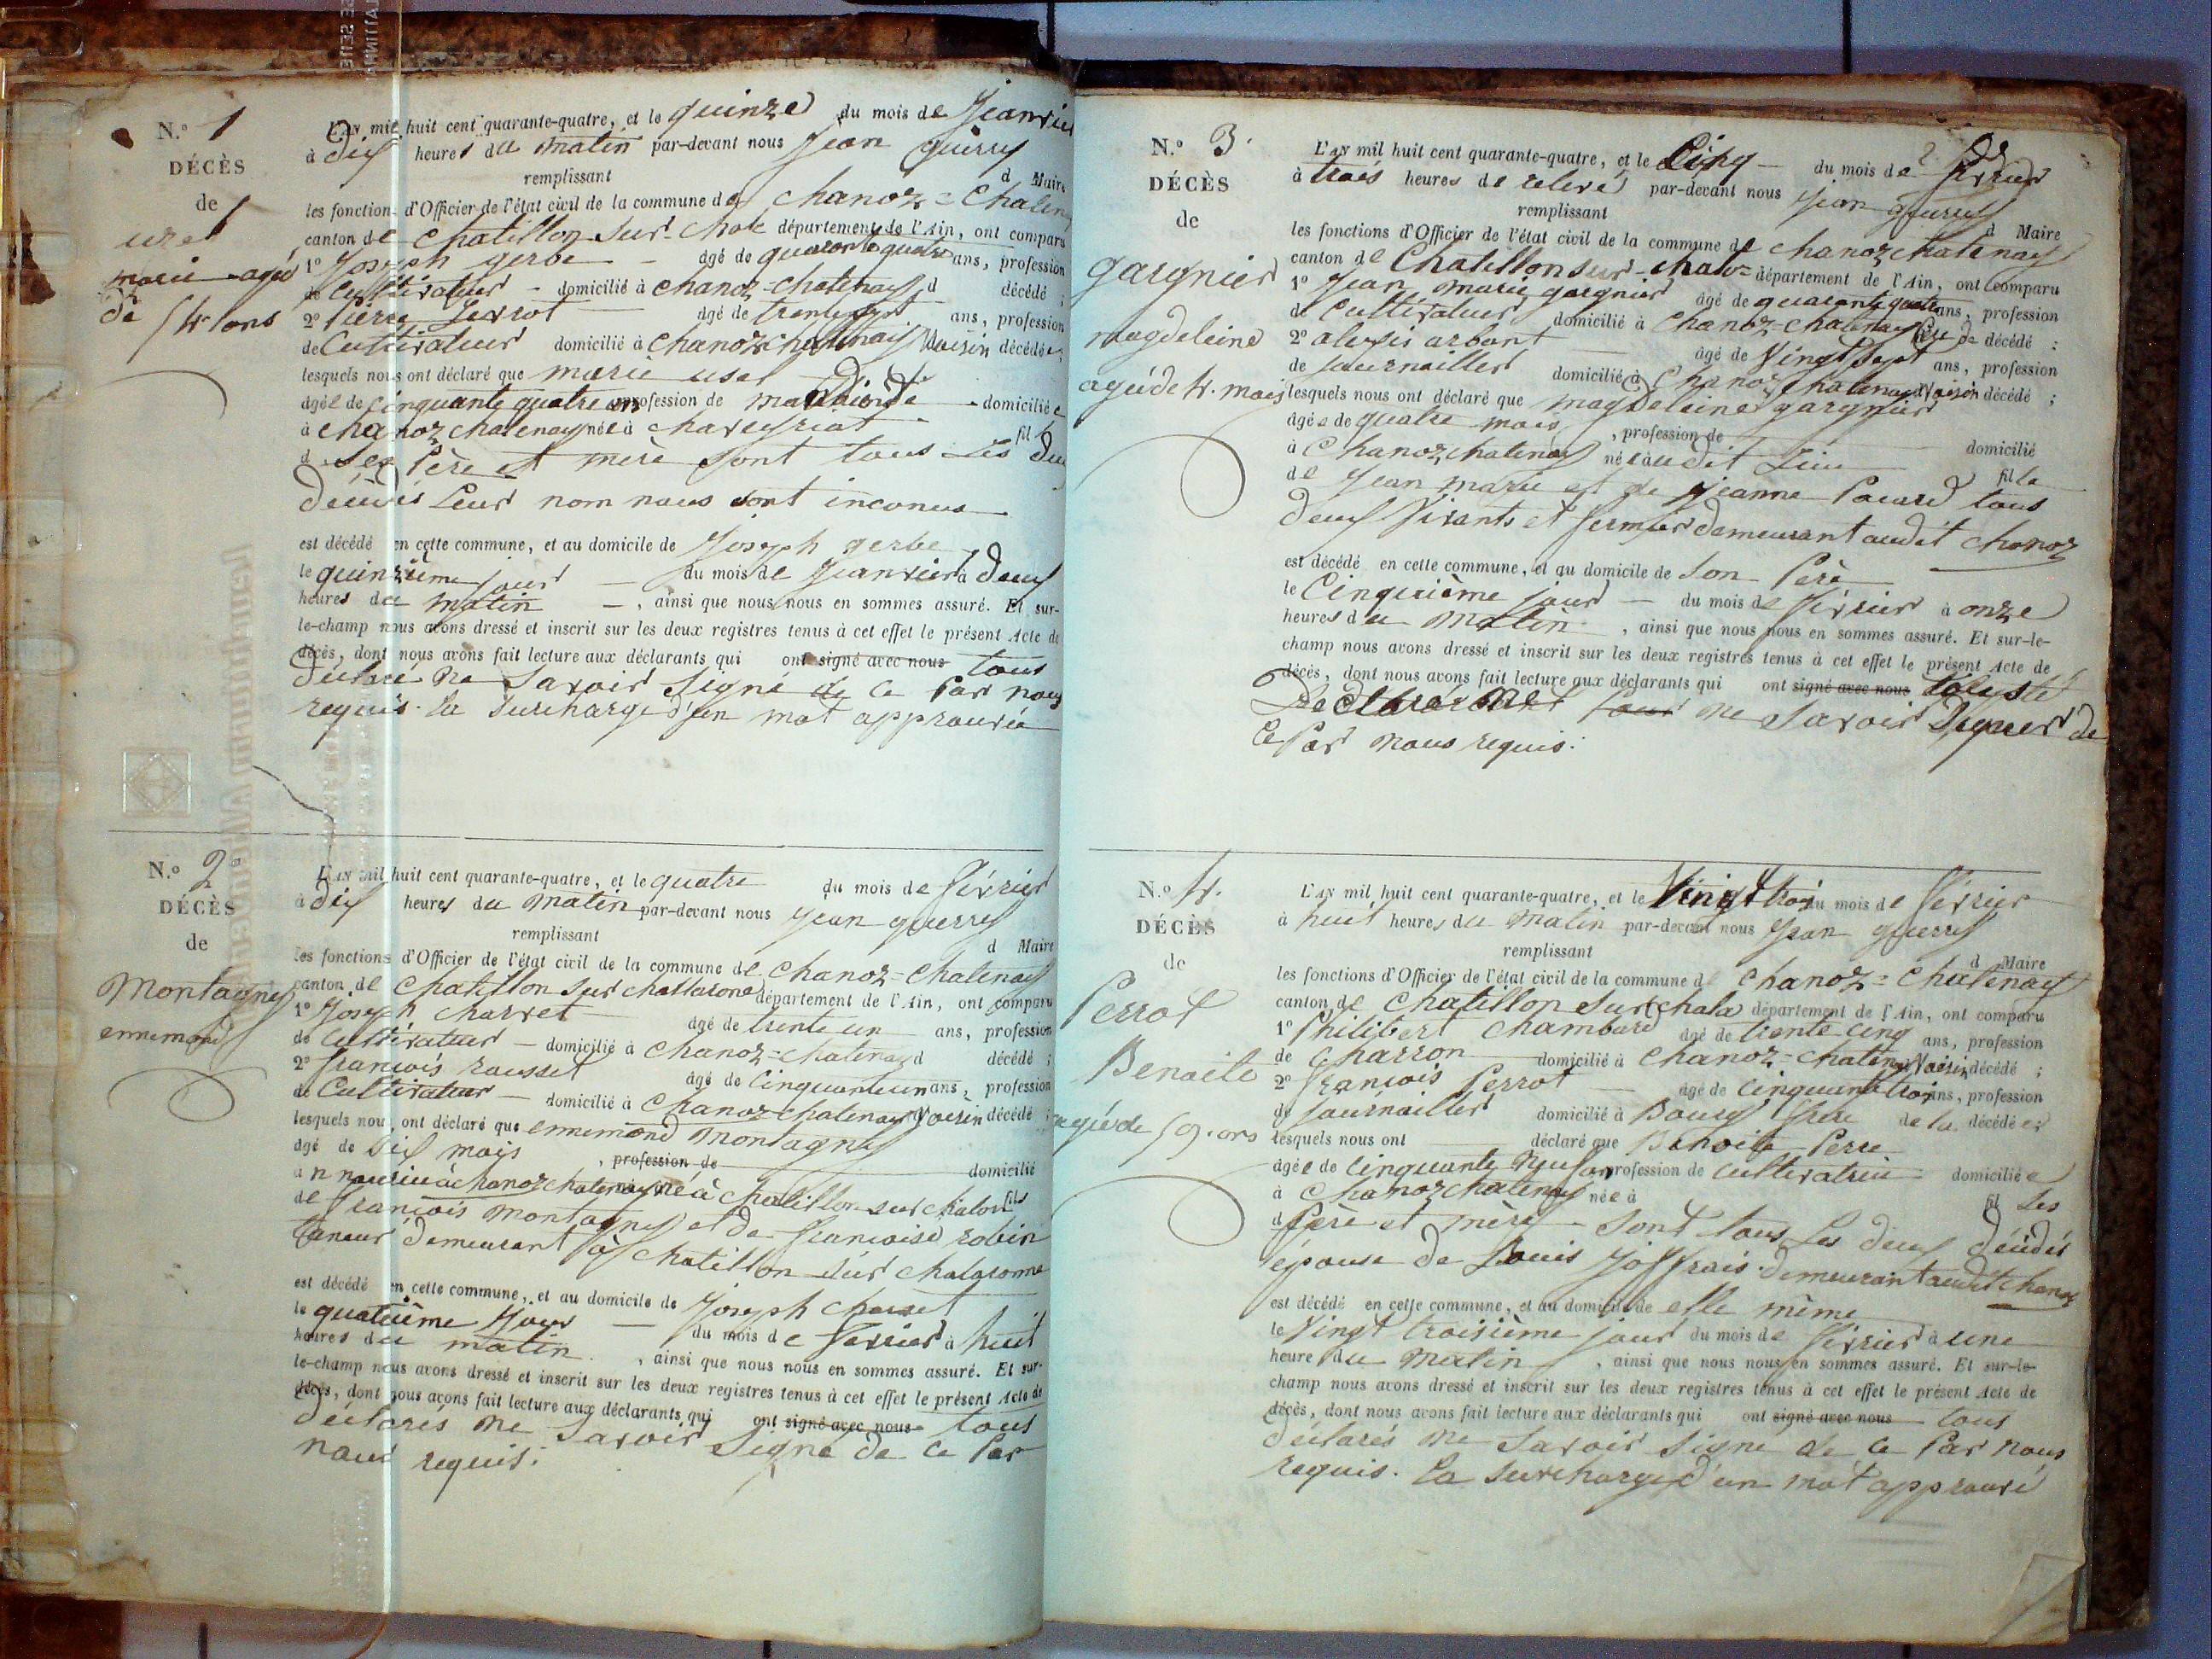 N.o 1
DÉCÈS
de
marie agée
de 54 ans
L'AN mil huit cent quarante-quatre, et le quinze du mois de Jeanvier
à dix heures du matin par-devant nous Jean guerry
remplissant d Maire
les fonctions d'Officier de l'état civil de la commune de chanoz = Chaten
canton de Chatillon sur-Chala département de l'Ain, ont comparu
1o Joseph gerbe âgé de quarante quatre ans, profession
de Cultivateur domicilié à chanoz-chatenay d décédé ;
2o Pierre âgé de trente sept ans, profession
de Cultivateur domicilié à Chanoz chatenay Voisin décédée ;
lesquels nous ont déclaré que marie
âgée de Cinquante quatre ans profession de domiciliée
à chanoz chatenay née à chaveyriat fil
d Ses Père et mère sont tous les deu
décidés Leur nom nous sont inconus
est décédé en cette commune, et au domicile de Joseph gerbe
le quinzième jour du mois de Jeanvier à deux
heures du matin , ainsi que nous nous en sommes assuré. Et sur-
le-champ nous avons dressé et inscrit sur les deux registres tenus à cet effet le présent Acte de
décès, dont nous avons fait lecture aux déclarants qui ont signé avec nous tous
déclaré ne Savoir Signé de ce Par nous
requis. La Surcharge d'un mot approuvée
N.o 2
DÉCÈS
de
Montagny
ennemond
L'AN mil huit cent quarante-quatre, et le quatre du mois de février
à dix heures du matin par-devant nous Jean guerry
remplissant d Maire
les fonctions d'Officier de l'état civil de la commune de Chanoz = Chatenay
canton de Chatillon sur chalarone département de l'Ain, ont comparu
1o Joseph Charvet âgé de trente un ans, profession
de Cultivateur domicilié à Chanoz-Chatenay d décédé ;
2o francois rousset âgé de Cinquante un ans, profession
de Cultivateur domicilié à Chanoz chatenay Voisin décédé ;
lesquels nous ont déclaré que ennemond montagny
âgé de Six mois , profession de domicilié
a n nourice à chanoz chatenay né à Chatillon sur chalar fils
de francois montagny et de francoise robin
taneur demeurant à Chatillon sur Chalarome
est décédé en cette commune, et au domicile de Joseph Charvet
le quatrième Jour du mois de fevrier à huit
heures du matin , ainsi que nous nous en sommes assuré. Et sur-
le-champ nous avons dressé et inscrit sur les deux registres tenus à cet effet le présent Acte de
décès, dont nous avons fait lecture aux déclarants qui ont signé avec nous tous
déclarés ne Savoir Signé de ce Par
nous requis.
N.o 3.
DÉCÈS
de
gargnier
magdeleine
agée de 4. mois
L'AN mil huit cent quarante-quatre, et le Cinq du mois de février
à trois heures de relevé par-devant nous Jean guerry
remplissant d Maire
les fonctions d'Officier de l'état civil de la commune de chanoz chatenay
canton de Chatillon sur-chala département de l'Ain, ont comparu
1o Jean marie gargnier âgé de quarante quatre ans, profession
de Cultivateur domicilié à Chanoz-chatenay de décédé :
2o alexis arbant âgé de Vingt Sept ans, profession
de journailler domicilié à Chanoz chatenay Voisin décédé ;
lesquels nous ont déclaré que magdeleine gargnier
âgée de quatre mois , profession de domicilié
à Chanoz chatenay née audit Lieu fille
de Jean marie et de Jeanne Pacard tous
deux Vivants et fermier demeurant audit Chanoz
est décédé en cette commune, et au domicile de Son Père
le Cinquième jour du mois de février à onze
heures du matin , ainsi que nous nous en sommes assuré. Et sur-le-
champ nous avons dressé et inscrit sur les deux registres tenus à cet effet le présent Acte de
décès, dont nous avons fait lecture aux déclarants qui ont signé avec nous
ne Savoir Signer de
Ce Par nous requis.
N.o 4.
DÉCÈS
de
Perrot
Benoite
agée de 59. ans
L'AN mil huit cent quarante-quatre, et le Vingt trois du mois de février
à huit heures du matin par-devant nous Jean guerry
remplissant d Maire
les fonctions d'Officier de l'état civil de la commune d Chanoz = Chatenay
canton de Chatillon sur chala département de l'Ain, ont comparu
1o Philibert Chambard âgé de trente cinq ans, profession
de Charron domicilié à Chanoz = chatenay Voisin décédé ;
2o francois Perrot âgé de Cinquante trois ans, profession
de journailler domicilié à Bourg frère de la décédée ;
lesquels nous ont déclaré que Benoite Perro
âgée de cinquante Neuf an profession de Cultivatrice domiciliée
à Chanoz chatenay née à fil Les
d Père et mère Sont tous Les deux décidés
épouse de Louis Joffrais demeurant audit Chanoz
est décédé en cette commune, et au domicile de elle même
le Vingt troisième jour du mois de février à une
heure du matin , ainsi que nous nous en sommes assuré. Et sur-le-
champ nous avons dressé et inscrit sur les deux registres tenus à cet effet le présent Acte de
décès, dont nous avons fait lecture aux déclarants qui ont signé avec nous tous
déclarés ne Savoir Signe de ce Par nous
requis. La Surcharge d'un mot approuvé